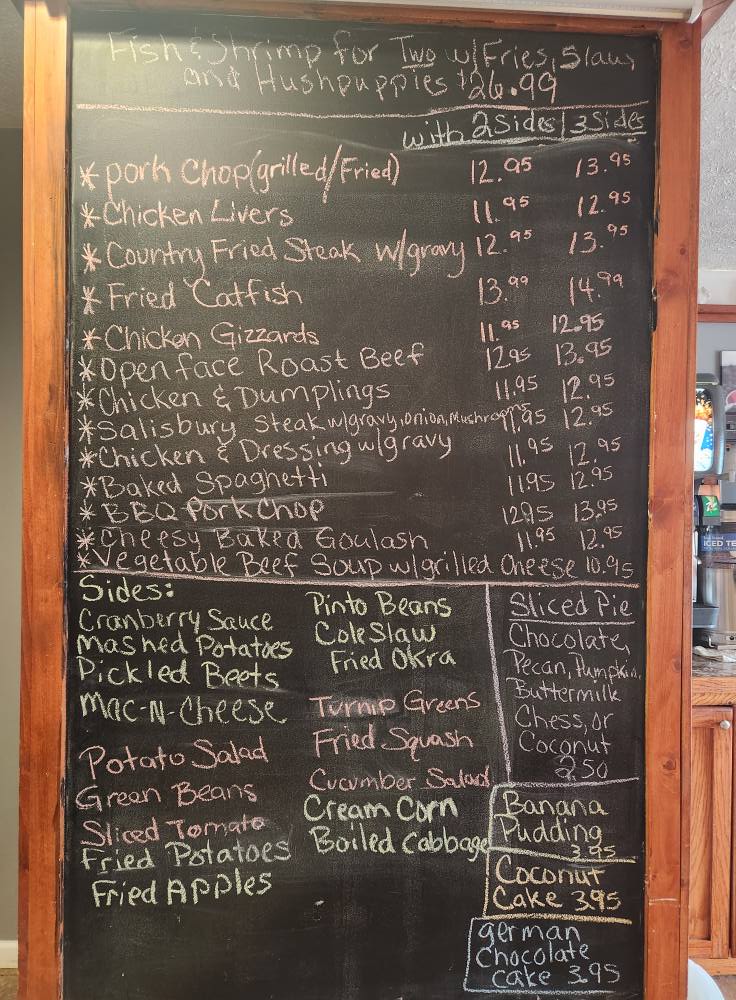 Fish & Shrimp for Two w/Fries, Slaw,
and Hushpuppies $26.99
with 2 Sides | 3 Sides
* pork Chop (grilled/Fried) 12.95 13.95
* Chicken Livers 11.95 12.95
* Country Fried Steak w/gravy 12.95 13.95
* Fried Catfish 13.99 14.99
* Chicken Gizzards 11.95 12.95
* Open face Roast Beef 12.95 13.95
* Chicken & Dumplings 11.95 12.95
* Salisbury Steak w/gravy, onion, Mushrooms 11.95 12.95
* Chicken & Dressing w/gravy 11.95 12.95
* Baked Spaghetti 11.95 12.95
* BBQ Pork Chop 12.95 13.95
* Cheesy Baked Goulash 11.95 12.95
* Vegetable Beef Soup w/grilled Cheese 10.95
Sides:
Cranberry Sauce
Mashed Potatoes
Pickled Beets
Mac-N-Cheese
Potato Salad
Green Beans
Sliced Tomato
Fried Potatoes
Fried Apples
Pinto Beans
Cole Slaw
Fried Okra
Turnip Greens
Fried Squash
Cucumber Salad
Cream Corn
Boiled Cabbage
Sliced Pie
Chocolate,
Pecan, Pumpkin,
Buttermilk
Chess, or
Coconut
2.50
Banana
Pudding
3.95
Coconut
Cake 3.95
german
Chocolate
Cake 3.95
ICED TE